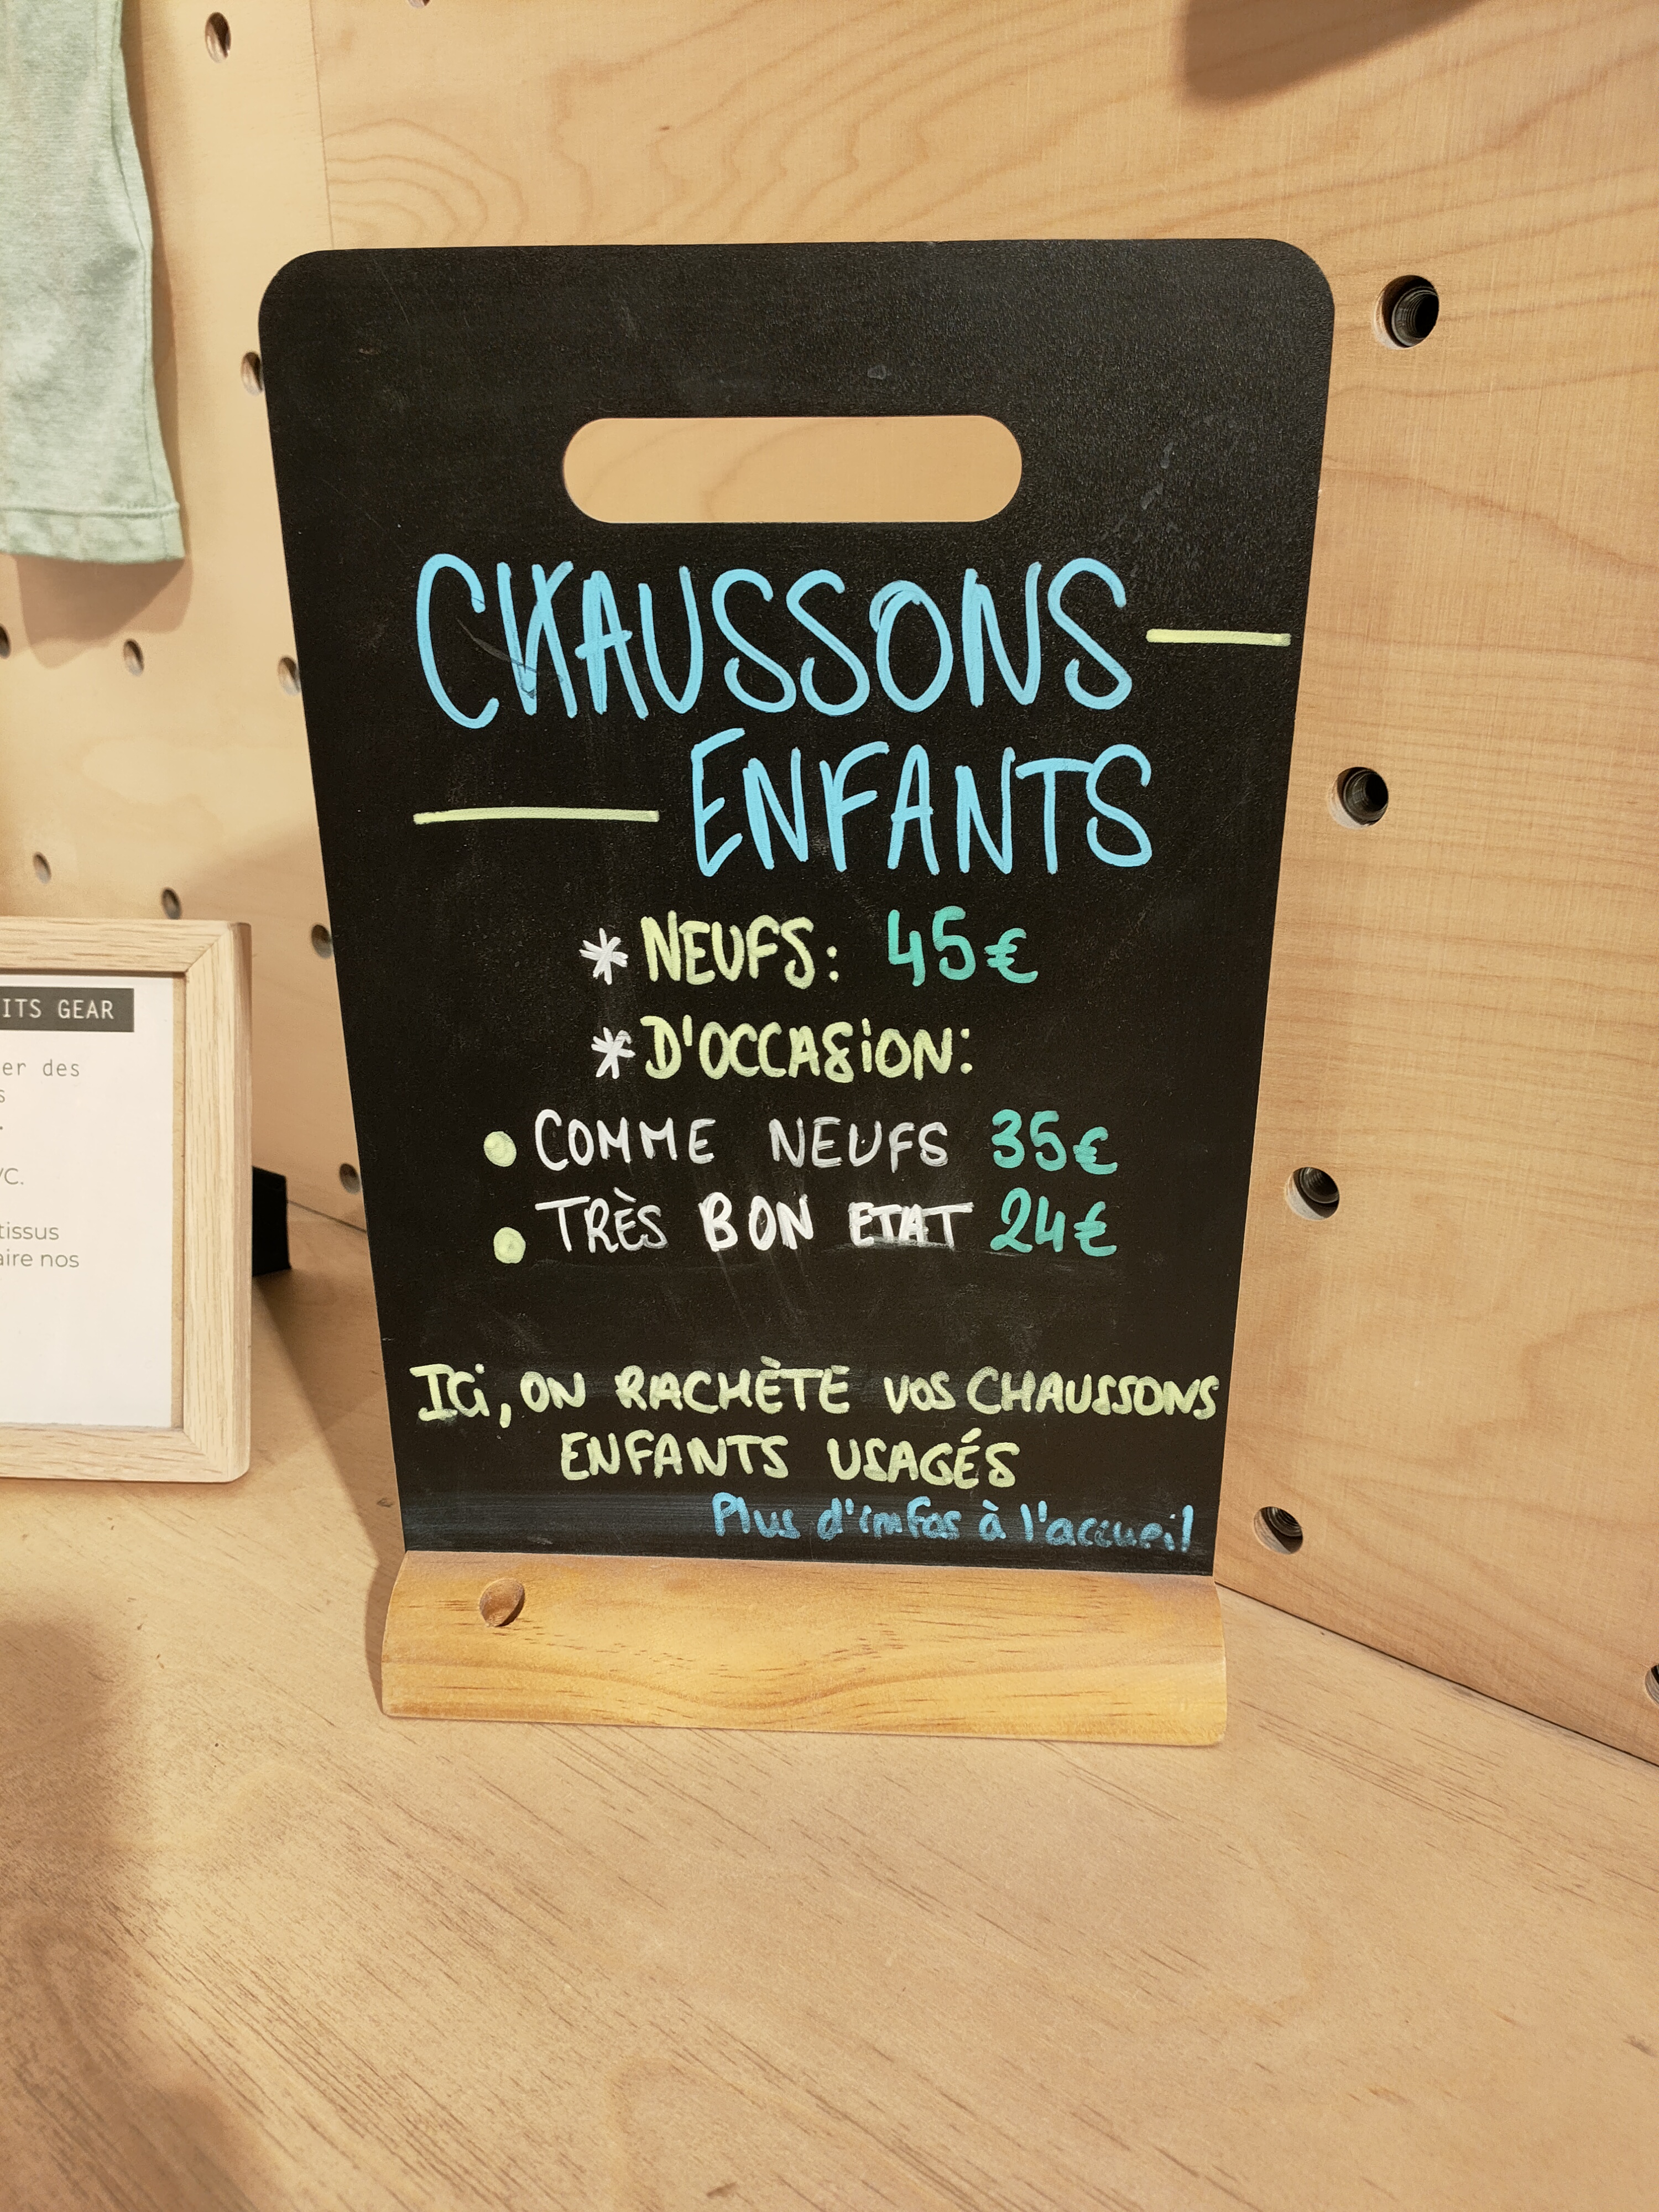 CHAUSSONS
ENFANTS
* NEUFS: 45€
* D'OCCASION:
• COMME NEUFS 35€
• TRÈS BON ETAT 24€
Ici, ON RACHÈTE VOS CHAUSSONS
ENFANTS USAGÉS
Plus d'infos à l'accueil
ITS GEAR
er des
s
.
VC.
tissus
aire nos